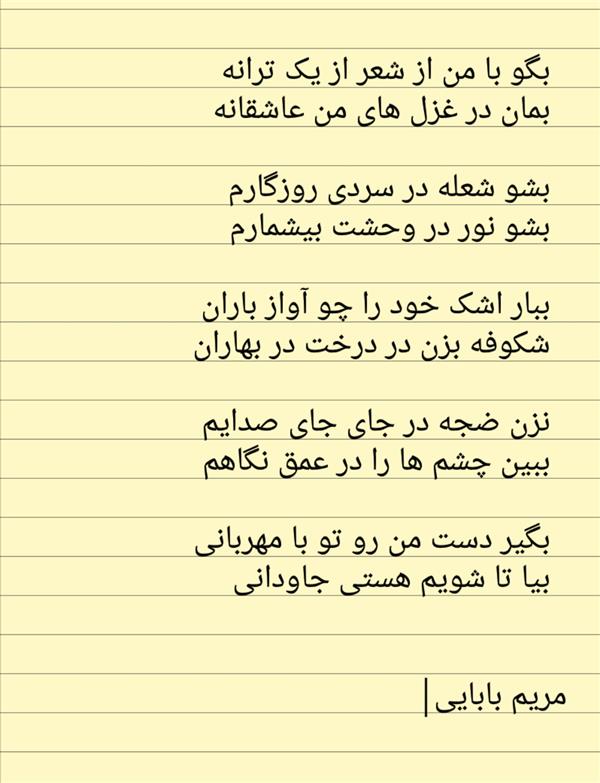 بگو با من از شعر از یک ترانه
بمان در غزل های من عاشقانه
بشو شعله در سردی روزگارم
بشو نور در وحشت بیشمارم
ببار اشک خود را چو آواز باران
شکوفه بزن در درخت در بهاران
نزن ضجه در جای جای صدایم
ببین چشم ها را در عمق نگاهم
بگیر دست من رو تو با مهربانی
بیا تا شویم هستی جاودانی
مریم بابایی